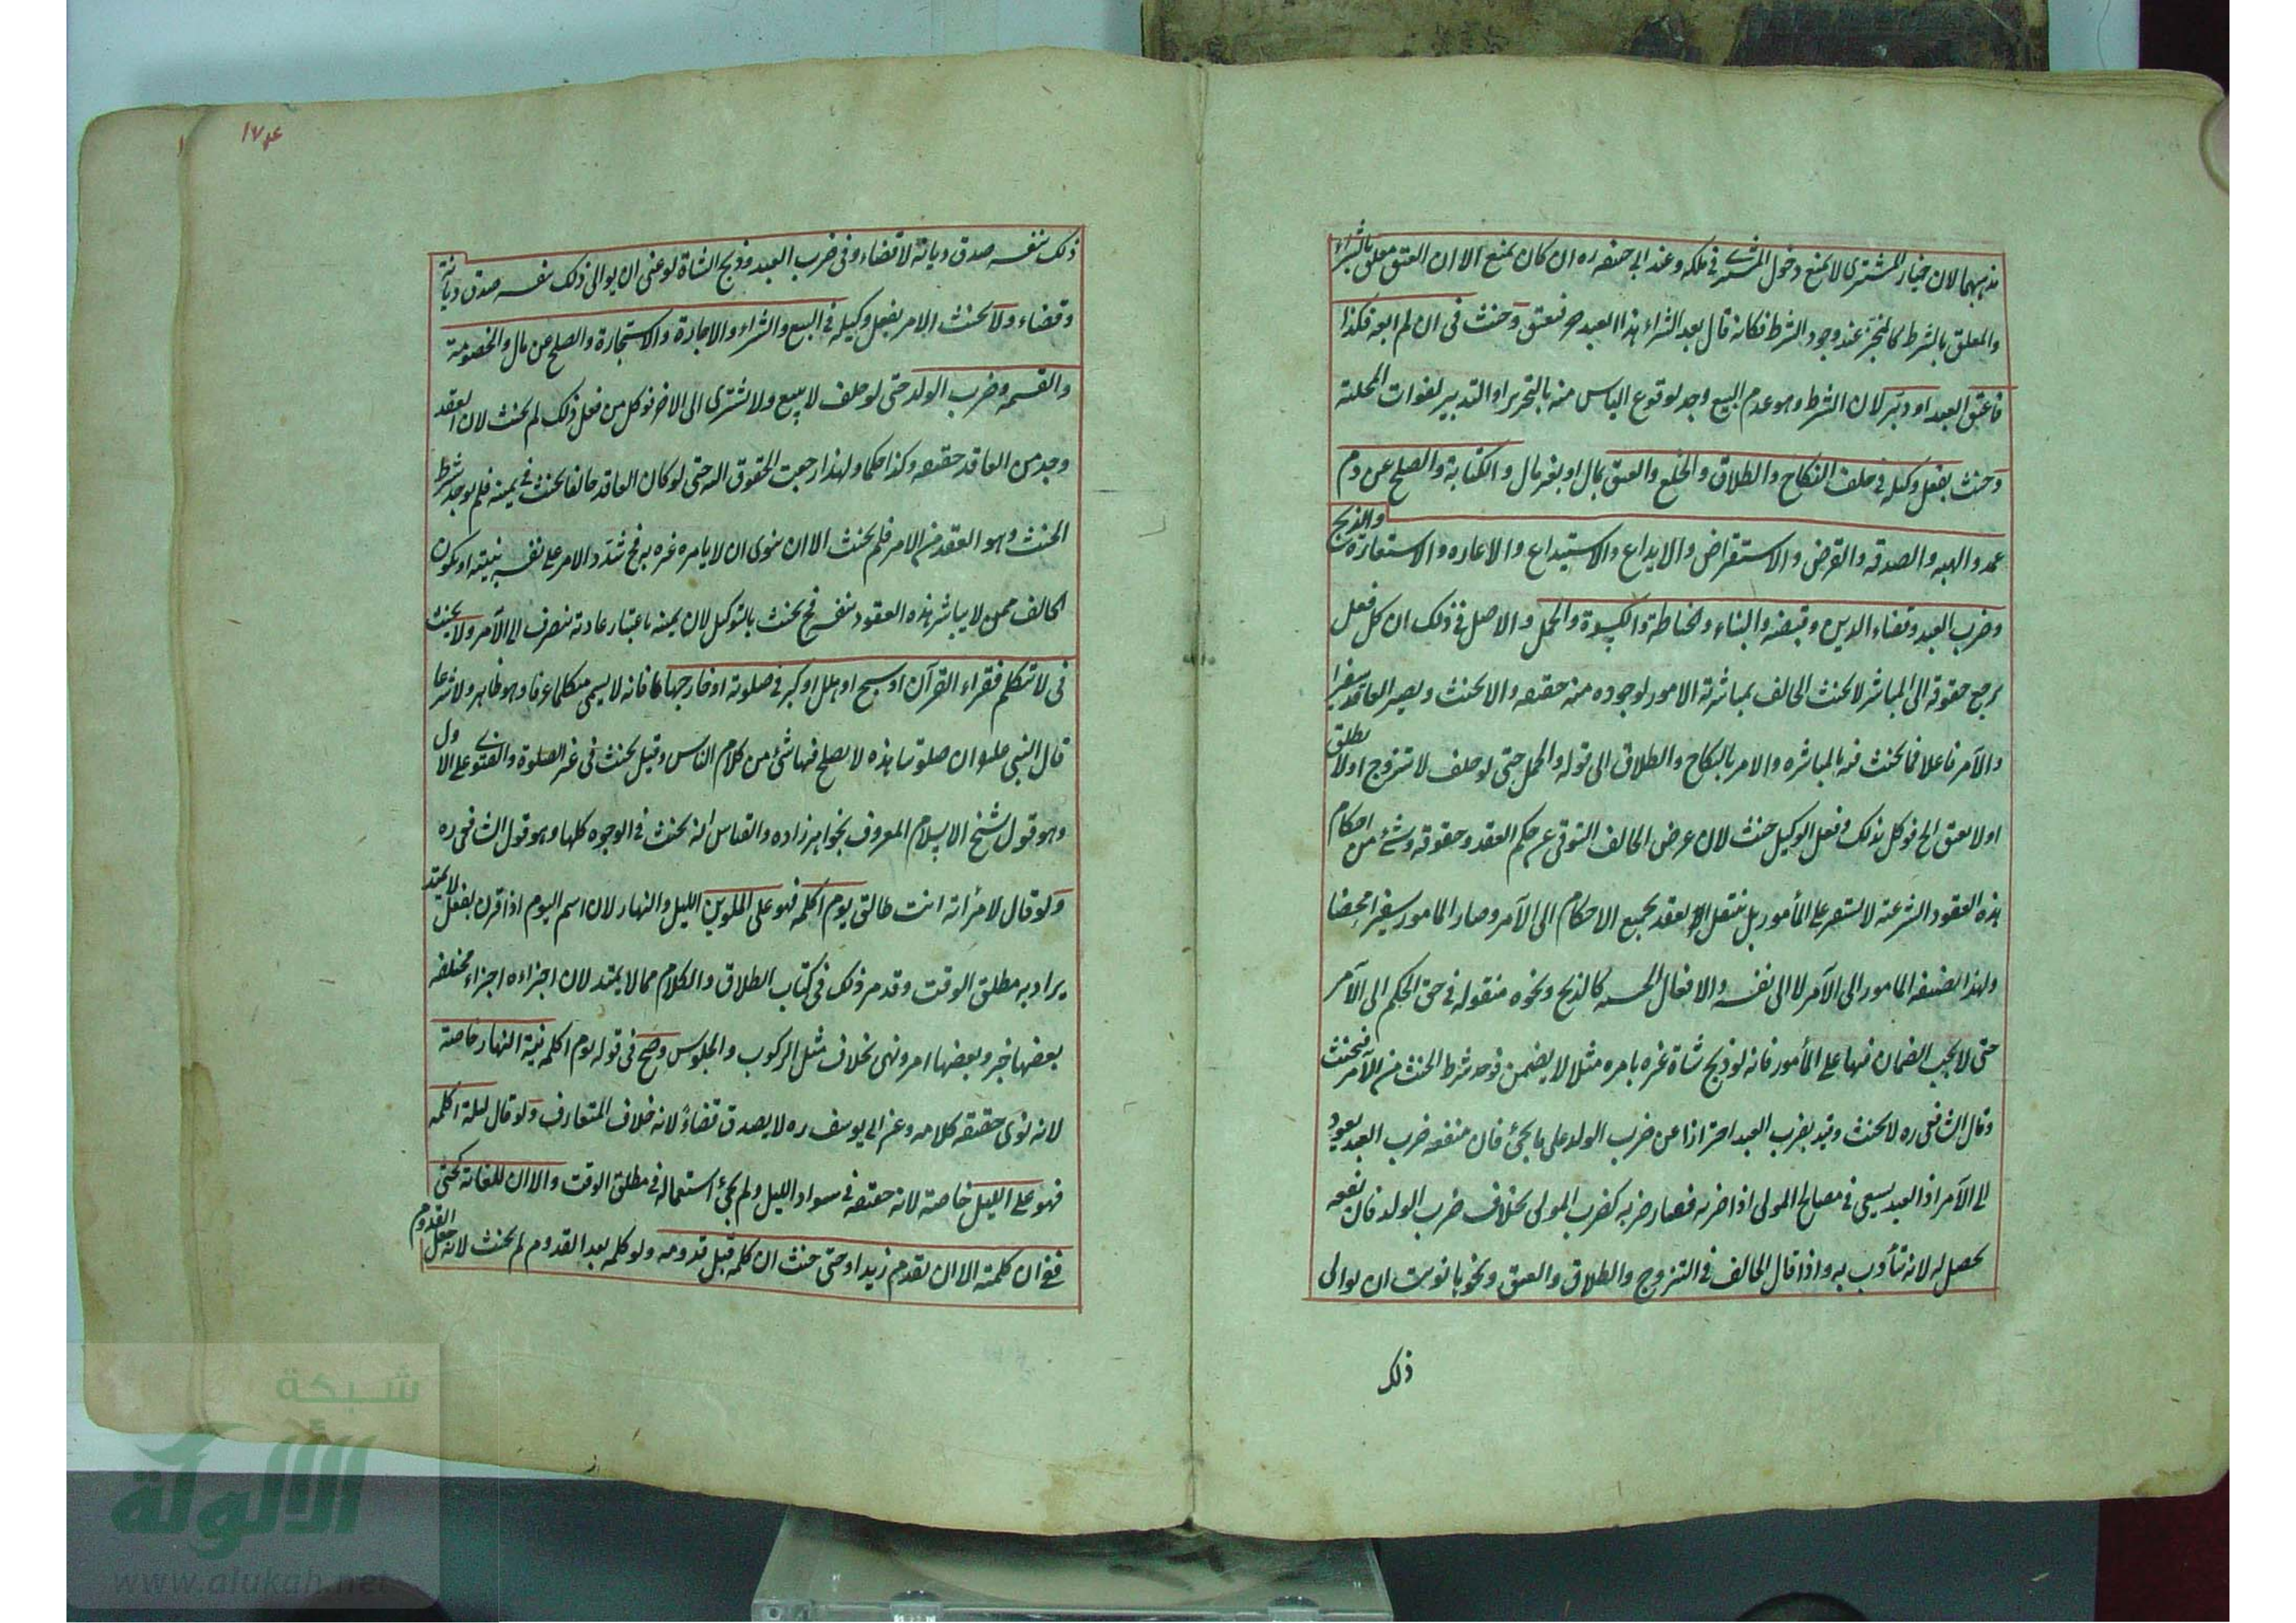 مذهبهما لان خيار المشترى لا يمنع دخول المشترى في ملكه وعند ابي حنيفه ره ان كان يمنع الا ان العتق معلق بالشراء
والمعلق بالشرط كالمنجز عند وجود الشرط فكانه قال بعد الشراء هذا العبد حر فيعتق وحنث فى ان لم ابعه فكذا
فاعتق العبد او دبر لان الشرط وهو عدم البيع وجد لوقوع الياس منه بالتحرير او التدبير لفوات المحلية
وحنث بفعل وكيله فى حلف النكاح والطلاق والخلع والعتق بمال او بغير مال والكتابة والصلح عن دم
عمد والهبه والصدقه والقرض والاستقراض والايداع والاستيداع والاعاره والاستعارة والذبح
وضرب العبد وقضاء الدين وقبضه والبناء والخياطة والكسوة والحمل والاصل فى ذلك ان كل فعل
يرجع حقوقه الى المباشر لا يحنث الحالف بمباشرة الامور لوجوده منه حقيقه والا يحنث ويصير العاقد سفيرا
والآمر فاعلا فيما يحنث فيه بالمباشره والامر بالنكاح والطلاق الى قوله والحمل حتى لو حلف لا يتزوج اولا يطلق
اولا يعتق الخ فوكل بذلك ففعل الوكيل حنث لان عرض الحالف التوقى عن حكم العقد وحقوقه وشئ من احكام
هذه العقود الشرعية لا يستقر على المأمور بل ينتقل العقد بجميع الاحكام الى الآمر وصار المامور سفيرا محضا
ولهذا يضيفه المامور الى الآمر لا الى نفسه والافعال الحسيه كالذبح ونحوه منقوله فى حق الحكم الى الآمر
حتى لا يجب الضمان فيها على المأمور فانه لو ذبح شاة غيره بامره مثلا لا يضمن فوجد شرط الحنث من الآمر فيحنث
وقال الشافعى ره لا يحنث وقيد بضرب العبد احترازا عن ضرب الولد على ما يجئ فان منفعه ضرب العبد يعود
الى الآمر اذ العبد يسعى فى مصالح المولى اذا ضربه فصار ضربه كضرب المولى بخلاف ضرب الولد فان نفعه
يحصل له لانه يتأدب به واذا قال الحالف فى التزوج والطلاق والعتق ونحوها نويت ان يوالى
ذلك
١٧٤
ذلك بنفسه صدق ديانة لا قضاء وفى ضرب العبد وذبح الشاة لو عنى ان يوالى ذلك بنفسه صدق ديانة
وقضاء ولا يحنث الامر بفعل وكيله فى البيع والشراء والاجارة والاستجارة والصلح عن مال والخصومة
والقسمه وضرب الولد حتى لو حلف لا يبيع ولا يشترى الى الاخر فوكل من فعل ذلك لم يحنث لان العقد
وجد من العاقد حقيقه وكذا حكما ولهذا رجعت الحقوق اليه حتى لو كان العاقد حالفا يحنث فى يمينه فلم يوجد شرط
الحنث وهو العقد من الامر فلم يحنث الا ان ينوى ان لا يامره غيره به فح شدد الامر على نفسه بنيته او يكون
الحالف ممن لا يباشر هذه العقود بنفسه فح يحنث بالتوكيل لان يمينه باعتبار عادته ينصرف الى الآمر ولا يحنث
فى لا يتكلم فقراء القرآن او سبح او هلل او كبر فى صلوته او خارجها فانه لا يسمى متكلما عرفا وهو ظاهر ولا شرعا
قال النبى علىه ان صلوتنا هذه لا يصلح فيها شئ من كلام الناس وقيل يحنث فى غير الصلوة والفتوى على الاول
وهو قول شيخ الاسلام المعروف بخواهر زاده والقياس انه يحنث فى الوجوه كلها وهو قول الشافعى ره
ولو قال لامرأته انت طالق يوم اكلمه فهو على الملوين الليل والنهار لان اسم اليوم اذا قرن بفعل لا يمتد
يراد به مطلق الوقت وقد مر ذلك فى كتاب الطلاق والكلام مما لا يمتد لان اجزاءه اجزاء مختلفه
بعضها خبر وبعضها امر ونهى بخلاف مثل الركوب والجلوس وصح فى قوله يوم اكلمه نية النهار خاصة
لانه نوى حقيقة كلامه وعن ابى يوسف ره لا يصدق قضاءً لانه خلاف المتعارف ولو قال ليلة اكلمه
فهو على الليل خاصة لانه حقيقه فى سواد الليل ولم يجئ استعماله فى مطلق الوقت والا ان للغاية كحتى
ففى ان كلمته الا ان يقدم زيد او حتى حنث ان كلمه قبل قدومه ولو كلمه بعد القدوم لم يحنث لانه جعل القدوم
شبكة
الألوكة
www.alukah.net